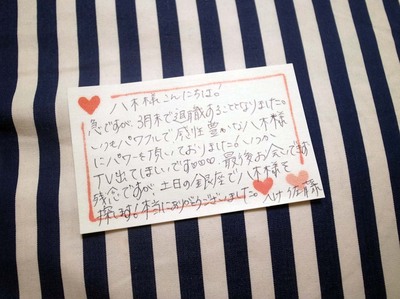 八木様こんにちは。
急ですが、3月末で退職することとなりました。
いつもパワフルで感性豊かな八木様
にパワーを頂いておりました。いつか
TV出てほしいです♡♡♡ 最後お会いできず
残念ですが、土日の銀座で八木様を
探します！本当にありがとうございました。 佐藤